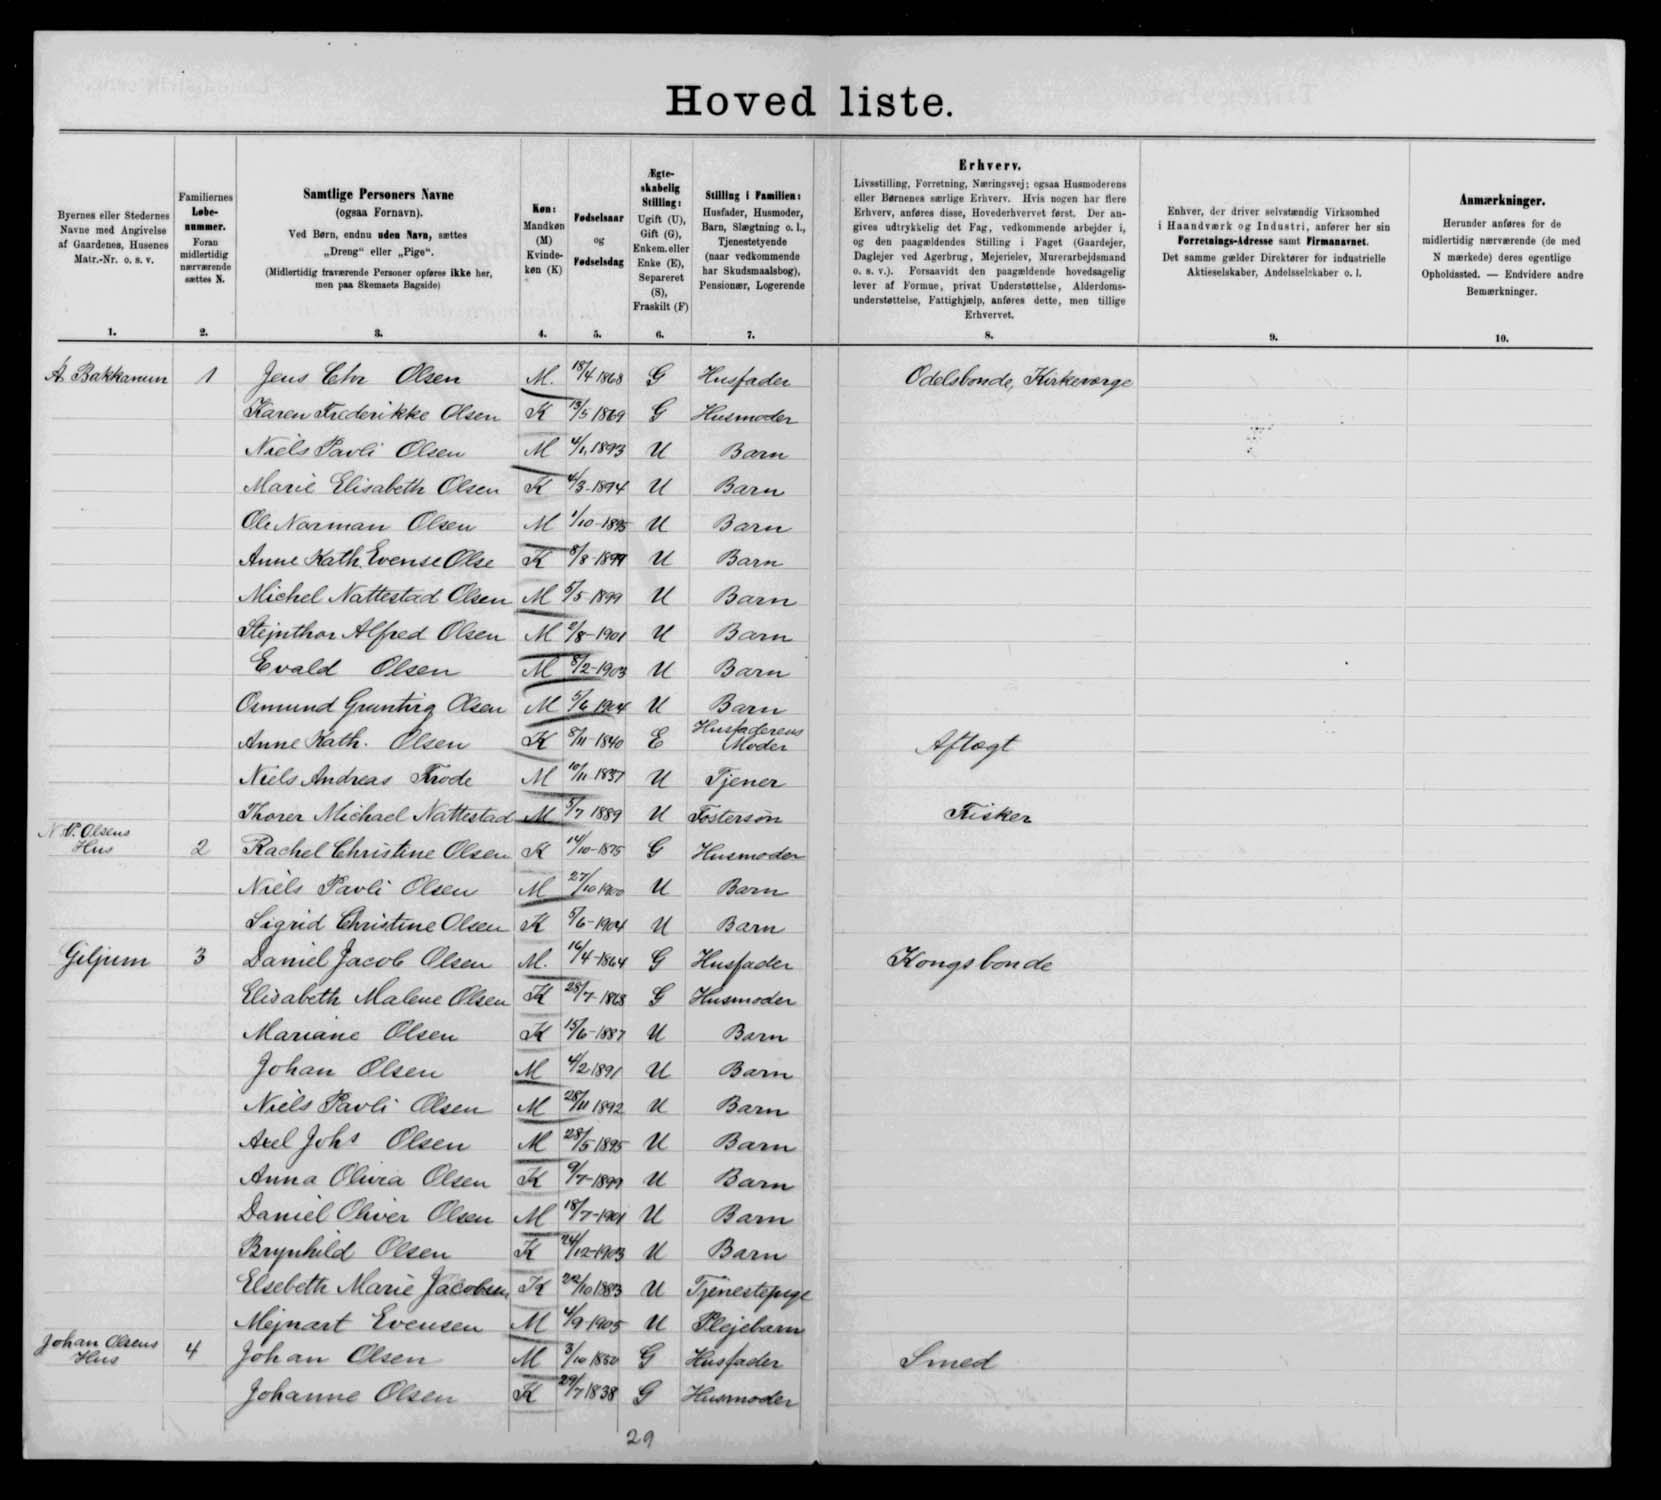 Hoved liste.
Byernes eller Stedernes
Navne med Angivelse
af Gaardenes, Husenes
Matr.-Nr. o. s. v.
1.
Familiernes
Løbe-
nummer.
Foran
midlertidig
nærværende
sættes N.
2.
Samtlige Personers Navne
(ogsaa Fornavn).
Ved Børn, endnu uden Navn, sættes
„Dreng“ eller „Pige“.
(Midlertidig fraværende Personer opføres ikke her,
men paa Skemaets Bagside)
3.
Køn:
Mandkøn
(M)
Kvinde-
køn (K)
4.
Fødselsaar
og
Fødselsdag
5.
Ægte-
skabelig
Stilling:
Ugift (U),
Gift (G),
Enkem. eller
Enke (E),
Separeret
(S),
Fraskilt (F)
6.
Stilling i Familien:
Husfader, Husmoder,
Barn, Slægtning o. l.,
Tjenestetyende
(naar vedkommende
har Skudsmaalsbog),
Pensionær, Logerende
7.
Erhverv.
Livsstilling, Forretning, Næringsvej; ogsaa Husmoderens
eller Børnenes særlige Erhverv. Hvis nogen har flere
Erhverv, anføres disse, Hovederhvervet først. Der an-
gives udtrykkelig det Fag, vedkommende arbejder i,
og den paagældendes Stilling i Faget (Gaardejer,
Daglejer ved Agerbrug, Mejerielev, Murerarbejdsmand
o. s. v.). Forsaavidt den paagældende hovedsagelig
lever af Formue, privat Understøttelse, Alderdoms-
understøttelse, Fattighjælp, anføres dette, men tillige
Erhvervet.
8.
Enhver, der driver selvstændig Virksomhed
i Haandværk og Industri, anfører her sin
Forretnings-Adresse samt Firmanavnet.
Det samme gælder Direktører for industrielle
Aktieselskaber, Andelsselskaber o. l.
9.
Anmærkninger.
Herunder anføres for de
midlertidig nærværende (de med
N mærkede) deres egentlige
Opholdssted. — Endvidere andre
Bemærkninger.
10.
Á Bakkanum 1 Jens Chr Olsen M. 18/4 1868 G Husfader Odelsbonde, Kirkeværge
Karen Frederikke Olsen K 13/5 1869 G Husmoder
Niels Pavli Olsen M 1893 U Barn
Marie Elisabeth Olsen K 4/3-1894 U Barn
Ole Norman Olsen M 1/10-1895 U Barn
Anne Kath. Evense Olse K 8/8-1899 U Barn
Michel Nattestad Olsen M 5/5-1899 U Barn
Stejnthor Alfred Olsen M 2/8-1901 U Barn
Evald Olsen M 8/2-1903 U Barn
Osmund Gruntvig Olsen M 5/6 1904 U Barn
Anne Kath. Olsen K 8/11-1840 E Husfaderens Moder Aftægt
Niels Andreas Frode M 10/11-1837 U Tjener
Thorer Michael Nattestad M 5/7 1889 U Fostersøn Fisker
N. P. Olsens
Hus 2 Rachel Christine Olsen K 14/10-1875 G Husmoder
Niels Pavli Olsen M 27/10 1900 U Barn
Sigrid Christine Olsen K 5/6-1904 U Barn
Giljum 3 Daniel Jacob Olsen M. 16/4-1864 G Husfader Kongsbonde
Elisabeth Malene Olsen K 28/7-1868 G Husmoder
Mariane Olsen K 15/6-1887 U Barn
Johan Olsen M 4/2 1891 U Barn
Niels Pavli Olsen M 28/11 1892 U Barn
Axel Johs Olsen M 28/5 1895 U Barn
Anna Olivia Olsen K 9/7-1899 U Barn
Daniel Oliver Olsen M 18/7-1901 U Barn
Brynhild Olsen K 24/12-1903 U Barn
Elsebeth Marie Jacobsen K 22/10 1883 U Tjenestepige
Mejnart Evensen M 4/9-1905 U Plejebarn
Johan Olsens
Hus 4 Johan Olsen M 3/10 1850 G Husfader Smed
Johanne Olsen K 29/7 1838 G Husmoder
29